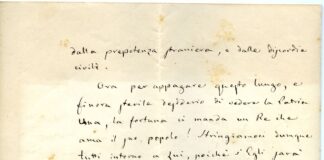 dalla prepotenza straniera, e dalle discordie
civili.
Ora per appagare questo lungo, e
finora sterile desiderio di vedere la Patria
Una, la fortuna ci manda un Re che
ama il suo popolo! Stringiamoci dunque
tutti intorno a Lui, poichè s'Egli sarà